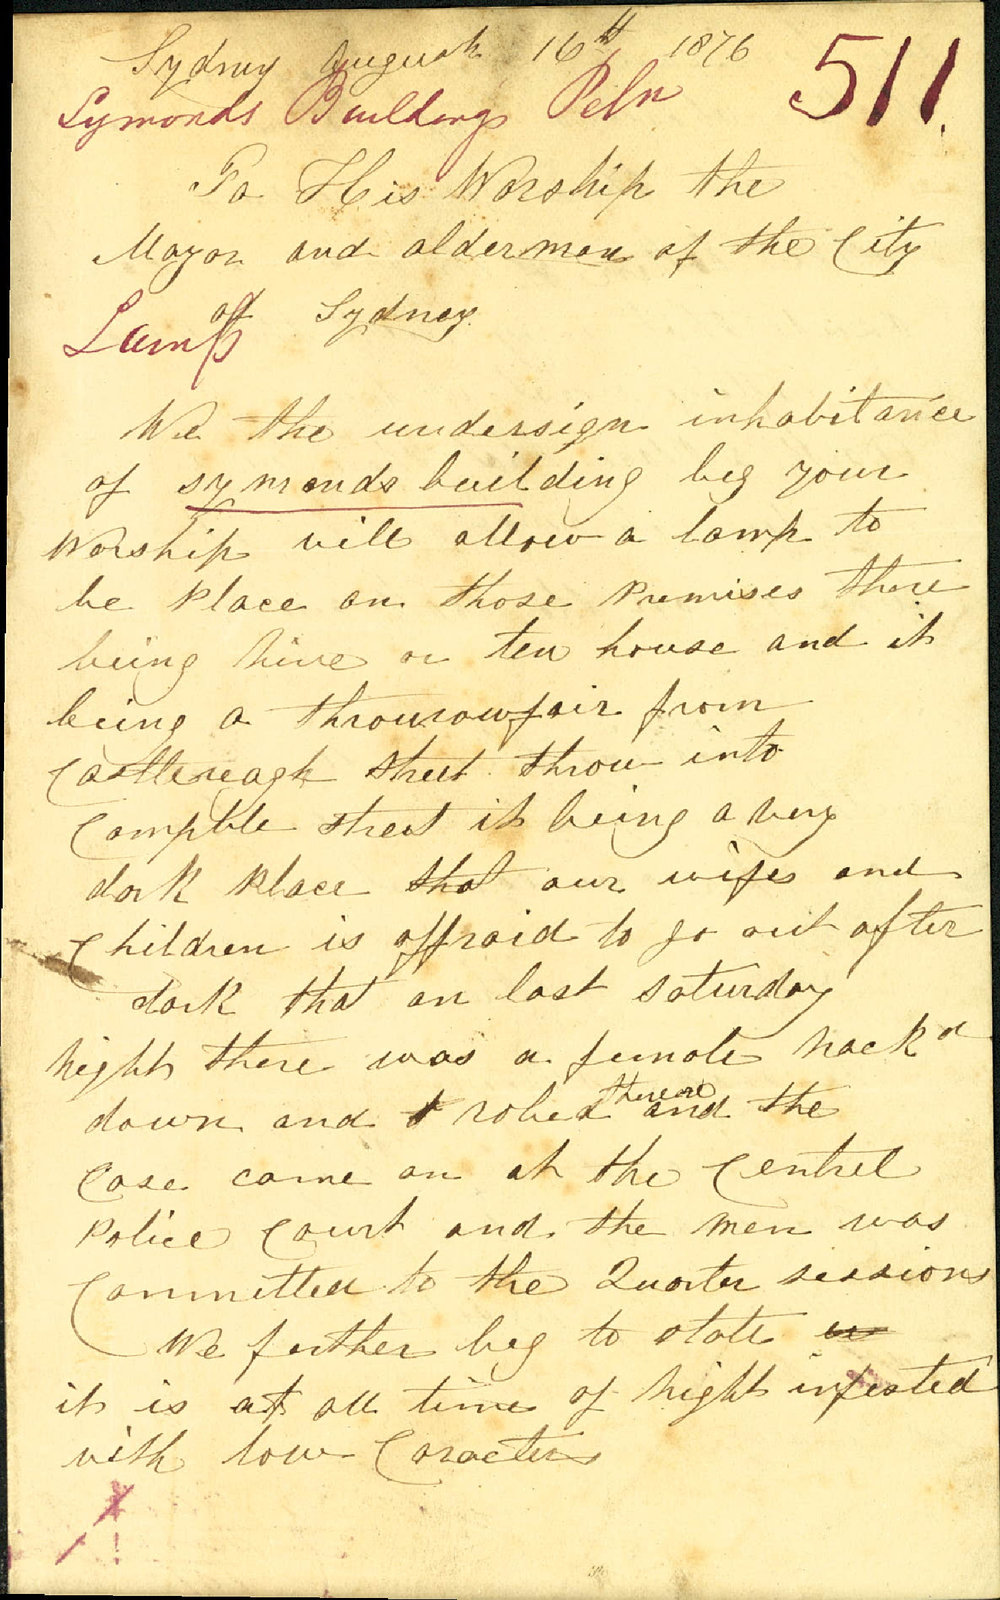 Sydney August 16th 1876
511.
Symonds Buildings Petn
To His Worship the
Mayor and aldermen of the City
of Sydney
Lamp
We the undersign inhabitance
of symonds building beg your
Worship will allow a lamp to
be place on those premises there
being nine or ten house and it
being a throurowfair from
Castlereagh street throu into
Campble street it being a very
dark place that our wifes and
Children is affraid to go out after
dark that on last saturday
night there was a female nock d
down and robed there
and the
Case came on at the Centrel
Police Court and the men was
Committed to the Quarter sessions
We ferther beg to state
it is at all time of night infested
with low Caracters